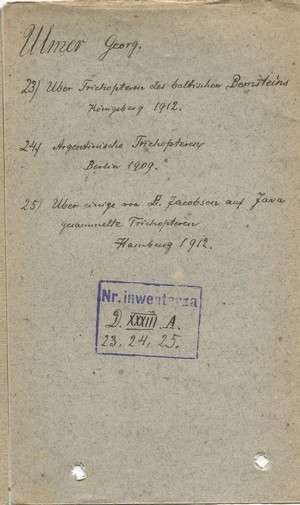 Ulmer Georg.
23) Über Trichopteren des baltischen Bernsteins
Königsberg 1912.
24) Argentinische Trichopteren
Berlin 1909.
25) Über einige von E. Jacobson auf Java
gesammelte Trichopteren
Hamburg 1912.
Nr. inwentarza
D. XXXIII A.
23, 24, 25.